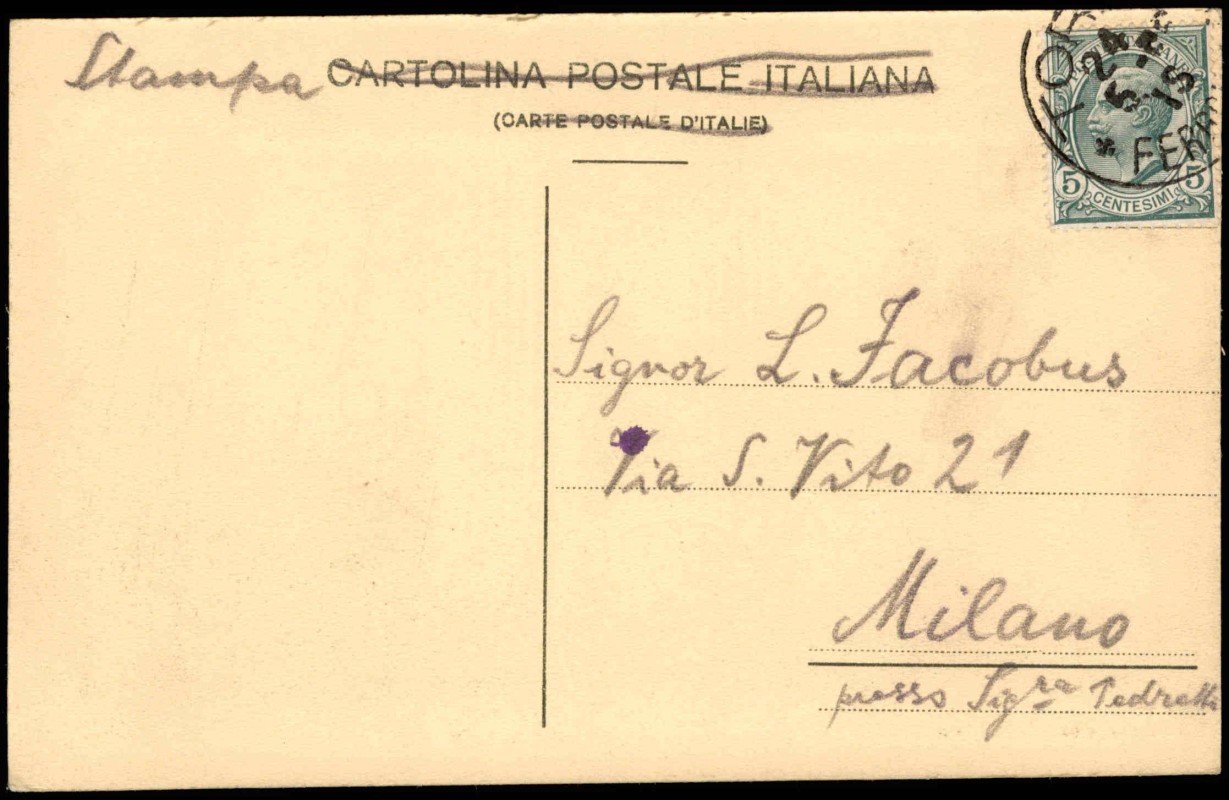 Stampa CARTOLINA POSTALE ITALIANA
(CARTE POSTALE D'ITALIE)
5 5
CENTESIMI
Signor L. Jacobus
Via S. Vito 21
Milano
presso Sig.ra Pedretti